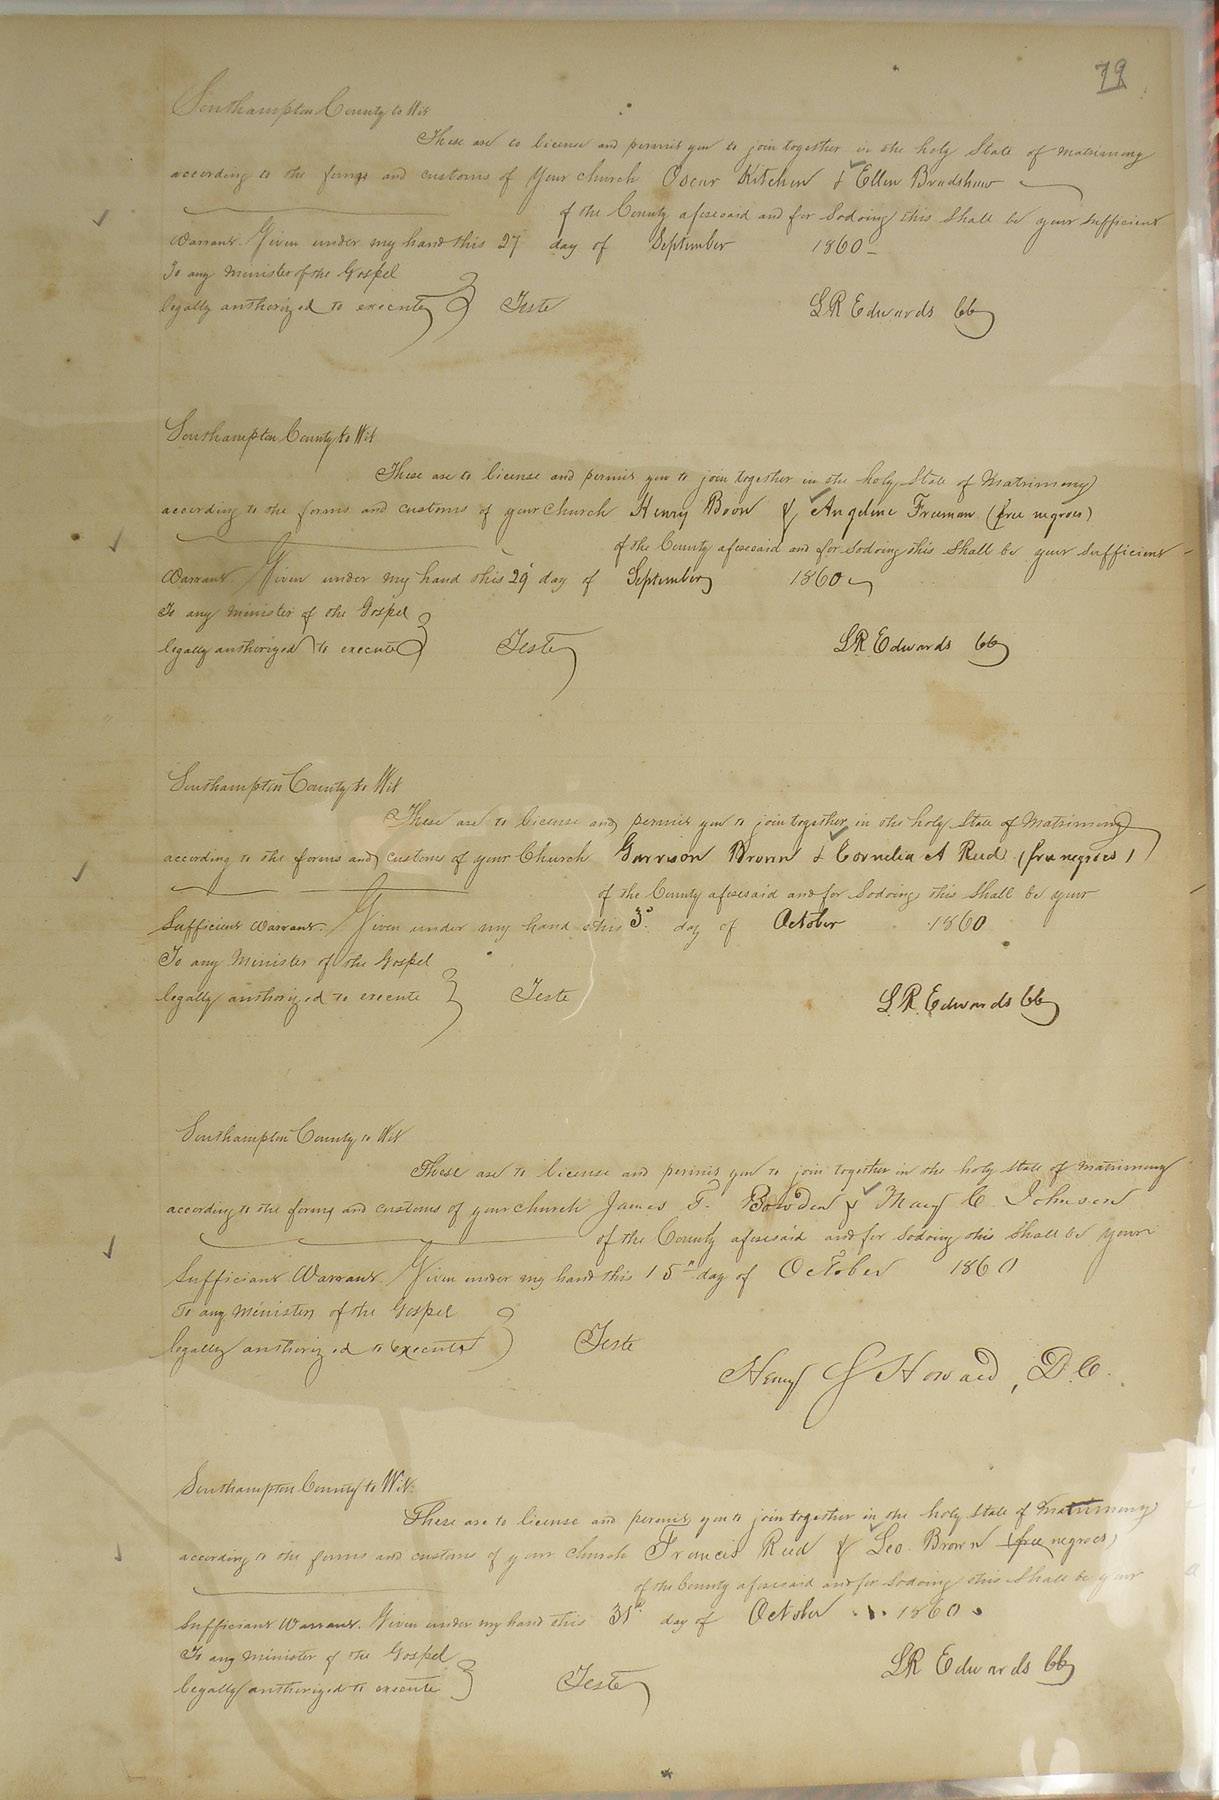 79
Southampton County to Wit
These are to license and permit you to join together in the holy State of Matrimony
according to the forms and customs of your church Oscar Kitchen & Ellen Bradshaw
of the County aforesaid and for Sodoing this Shall be your sufficient
Warrant. Given under my hand this 27 day of September 1860
To any Minister of the Gospel
legally authorized to execute } Teste LR Edwards CC
Southampton County to Wit
These are to license and permit you to join together in the holy State of Matrimony
according to the forms and customs of your church Henry Boon & Angeline Freeman (free negroes)
of the County aforesaid and for Sodoing this Shall be your Sufficient
Warrant. Given under my hand this 29 day of September 1860
To any Minister of the Gospel
legally authorized to execute } Teste LR Edwards CC
Southampton County to Wit
These are to license and permit you to join together in the holy State of Matrimony
according to the forms and customs of your Church Garrison Brown & Cornelia A Reed (free negroes)
of the County aforesaid and for Sodoing this Shall be your
Sufficient Warrant. Given under my hand this 3d day of October 1860
To any Minister of the Gospel
legally authorized to execute } Teste LR Edwards CC
Southampton County to Wit
These are to license and permit you to join together in the holy State of Matrimony
according to the forms and customs of your church James F. Bowden & Mary C Johnson
of the County aforesaid and for Sodoing this Shall be your
Sufficient Warrant. Given under my hand this 15th day of October 1860
To any Minister of the Gospel
legally authorized to execute } Teste
Henry Howard, D.C.
Southampton County to Wit
These are to license and permit you to join together in the holy State of Matrimony
according to the forms and customs of your church Francis Reed & Leo. Brown (free negroes)
of the County aforesaid and for Sodoing this Shall be your
Sufficient Warrant. Given under my hand this 31st day of October 1860
To any Minister of the Gospel
legally authorized to execute } Teste LR Edwards CC